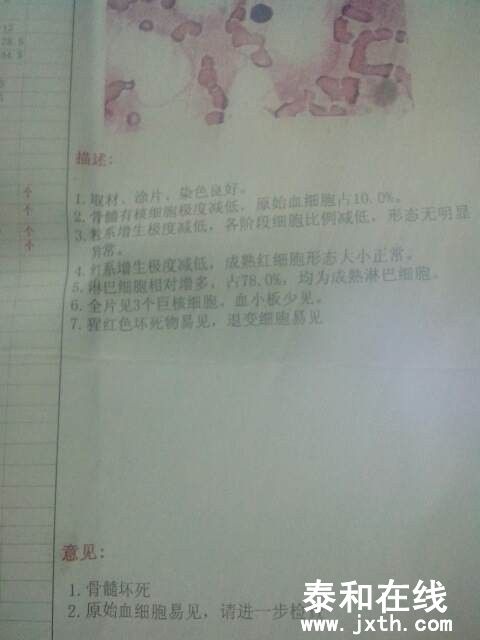 描述:
1. 取材、涂片、染色良好。
2. 骨髓有核细胞极度减低，原始血细胞占10.0%。
3. 系增生极度减低，各阶段细胞比例减低，形态无明显
异常。
4. 红系增生极度减低，成熟红细胞形态大小正常。
5. 淋巴细胞相对增多，占78.0%，均为成熟淋巴细胞。
6. 全片见3个巨核细胞，血小板少见。
7. 猩红色坏死物易见，退变细胞易见
意见:
1. 骨髓坏死
2. 原始血细胞易见，请进一步检
泰和在线
www.jxth.com